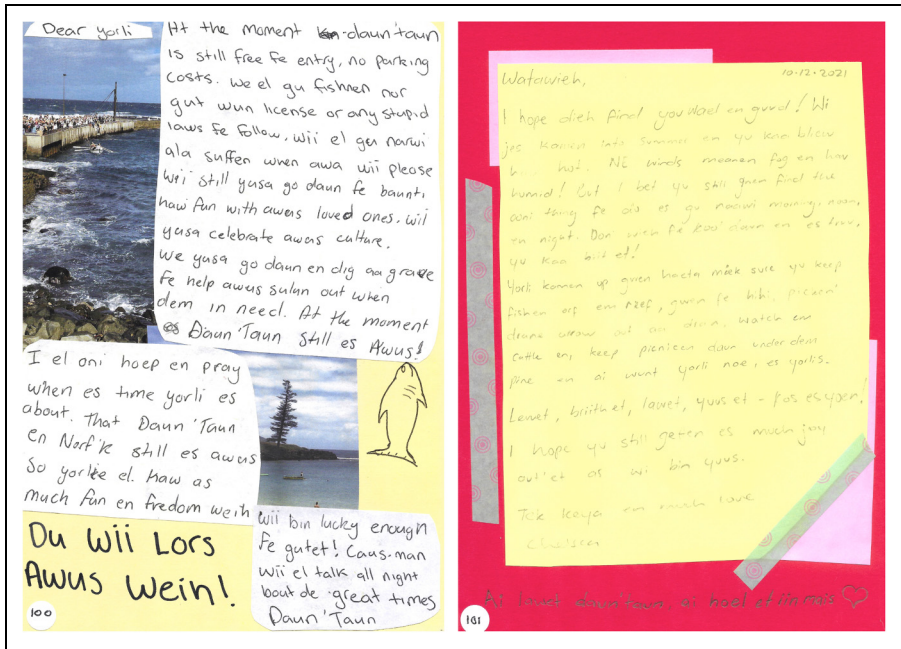 Dear yorli
At the moment daun'taun
is still free fe entry, no parking
costs. We el gu fishen nor
gut wun license or any stupid
laws fe follow. Wii el gu narwi
ala suffen when awa wii please
Wii still yusa go daun fe baunt,
haw fun with awus loved ones. Wii
yusa celebrate awus culture.
We yusa go daun en dig aa grave
Fe help awus sulun out when
dem in need. At the moment
Daun'Taun still es Awus!
I el oni hoep en pray
when es time yorli es
about. That Daun'Taun
en Norf'k still es awus
So yorlie el haw as
much fun en fredom weih
Wii bin lucky enough
Fe gutet! Caus-man
Wii el talk all night
bout de great times
Daun'Taun
Du Wii Lors
Awus Wein!
100
10.12.2021
Watawieh,
I hope dieh find you wael en guud! Wi
jes kamen into summer en yu kaa bliiw
hot. NE winds meanen fog en
humid! But I bet yu still guen find the
ooni thing fe du es gu naawi morning, noon,
en night. Don wieh fe kau' daun en es truu,
yu kaa biit et!
Yorli kamen up guen haeta maek sure yu keep
fishen orf em reef, guen fe hihi, picken'
drane out an, watch em
cattle en, keep picnicen daun under dem
pine en ai wunt yorli noe, es yorlis.
Lewet, briith et, lawet, yuus et - kos es yoen!
I hope yu still geten es much joy
out'et as wi bin yuus.
Tek keya en much love
Chelsea
Ai lawet daun'taun, ai hoel et iin mais
101